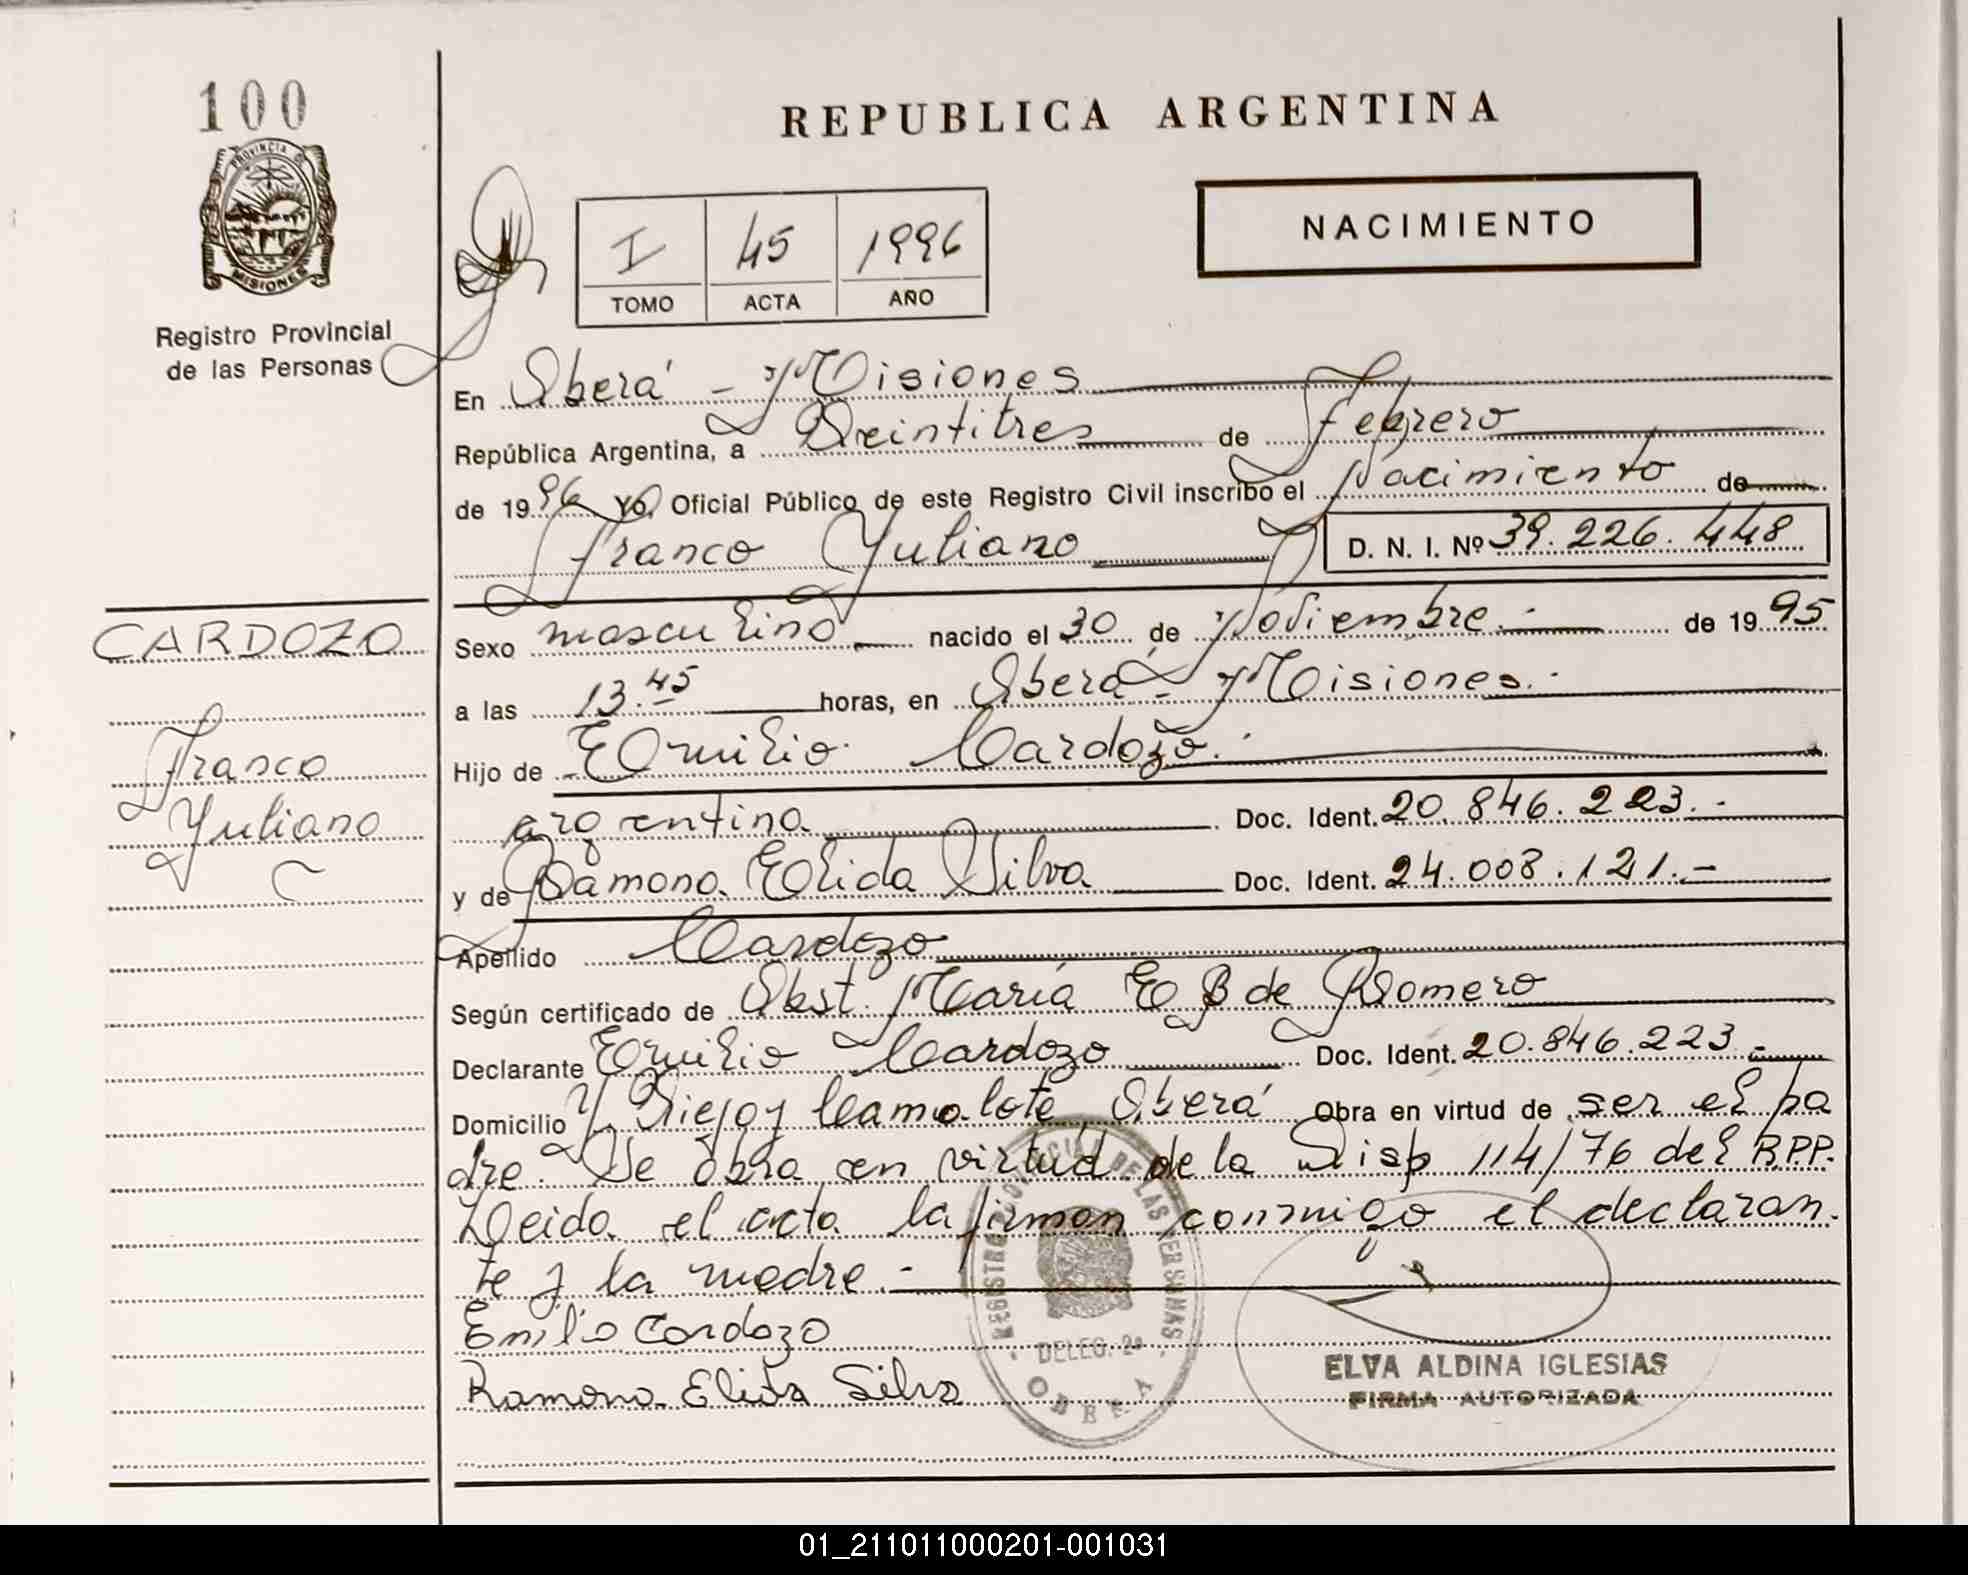 100
REPUBLICA ARGENTINA
PROVINCIA DE
MISIONES
Registro Provincial
de las Personas
NACIMIENTO
I 45 1996
TOMO ACTA AÑO
En Oberá - Misiones
República Argentina, a Veintitres de Febrero
de 1996 Yo, Oficial Público de este Registro Civil inscribo el Nacimiento de
Franco Yuliano D. N. I. Nº 39.226.448
CARDOZO
Franco
Yuliano
Sexo masculino nacido el 30 de Noviembre.- de 1995
a las 13.45 horas, en Oberá - Misiones.-
Hijo de Emilio Cardozo.-
argentina Doc. Ident. 20.846.223.-
y de Ramona Elida Silva Doc. Ident. 24.008.121.-
Apellido Cardozo
Según certificado de Obst. María E B de Romero
Declarante Emilio Cardozo Doc. Ident. 20.846.223.-
Domicilio Viejo y Camalote Oberá Obra en virtud de ser el pa
dre. Se obra en virtud de la Disp 114/76 del R.P.P.
Leida el acta la firman conmigo el declaran.
te y la madre.-
Emilio Cardozo
Ramona Elida Silva
REGISTRO PROVINCIAL DE LAS PERSONAS
DELEG. 2a
OBERA
ELVA ALDINA IGLESIAS
FIRMA AUTORIZADA
01_211011000201-001031